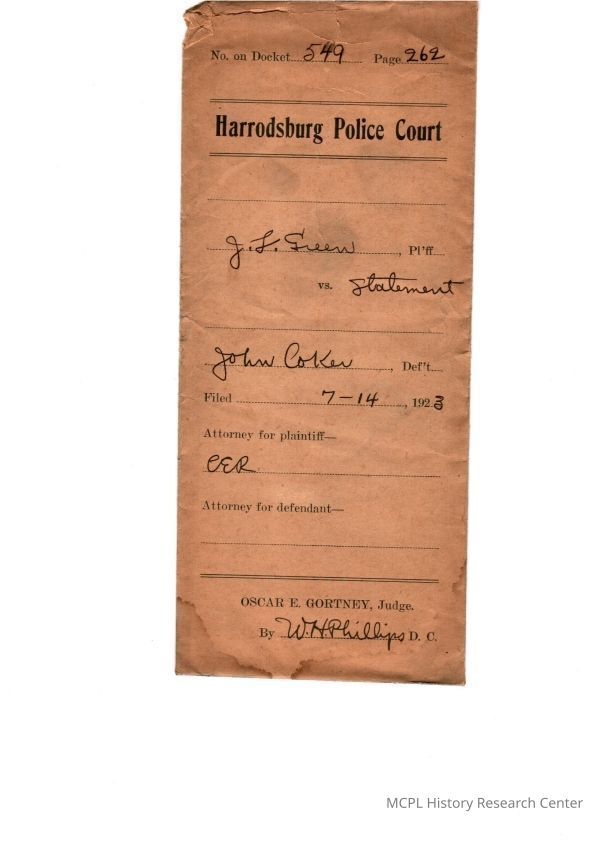 No. on Docket 549 Page 262
Harrodsburg Police Court
J. L. Green, Pl'ff
vs. Statement
John Coker, Def't
Filed 7-14, 1923
Attorney for plaintiff—
CER
Attorney for defendant—
OSCAR E. GORTNEY, Judge.
By W.H. Phillips D. C.
MCPL History Research Center